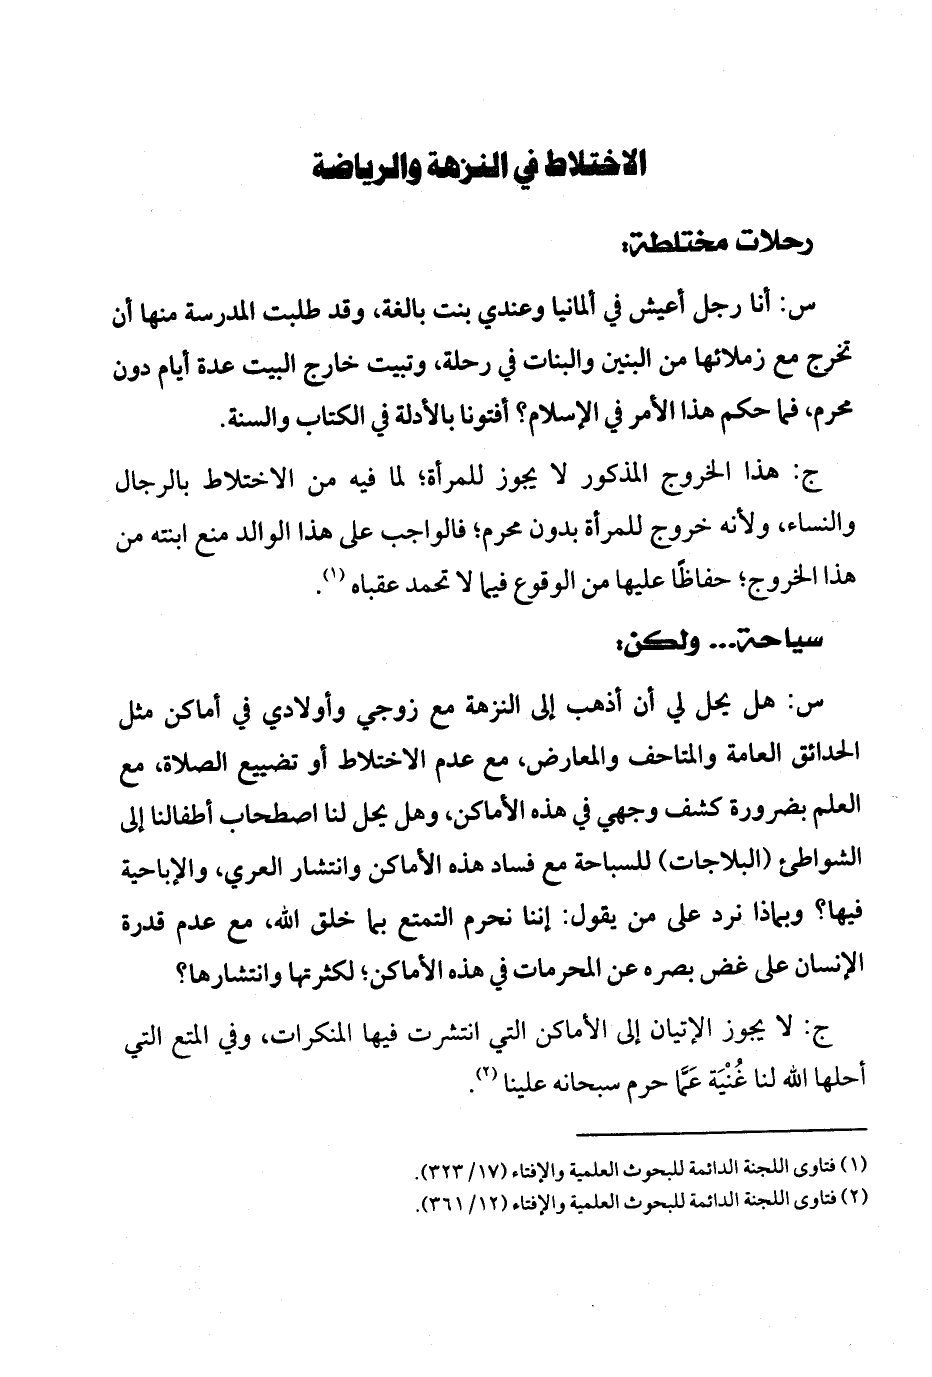 الاختلاط في النزهة والرياضة
رحلات مختلطة:
س: أنا رجل أعيش في ألمانيا وعندي بنت بالغة، وقد طلبت المدرسة منها أن
تخرج مع زملائها من البنين والبنات في رحلة، وتبيت خارج البيت عدة أيام دون
محرم، فما حكم هذا الأمر في الإسلام؟ أفتونا بالأدلة في الكتاب والسنة.
ج: هذا الخروج المذكور لا يجوز للمرأة؛ لما فيه من الاختلاط بالرجال
والنساء، ولأنه خروج للمرأة بدون محرم؛ فالواجب على هذا الوالد منع ابنته من
هذا الخروج؛ حفاظًا عليها من الوقوع فيما لا تحمد عقباه (١).
سياحة... ولكن:
س: هل يحل لي أن أذهب إلى النزهة مع زوجي وأولادي في أماكن مثل
الحدائق العامة والمتاحف والمعارض، مع عدم الاختلاط أو تضييع الصلاة، مع
العلم بضرورة كشف وجهي في هذه الأماكن، وهل يحل لنا اصطحاب أطفالنا إلى
الشواطئ (البلاجات) للسباحة مع فساد هذه الأماكن وانتشار العري، والإباحية
فيها؟ وبماذا نرد على من يقول: إننا نحرم التمتع بما خلق الله، مع عدم قدرة
الإنسان على غض بصره عن المحرمات في هذه الأماكن؛ لكثرتها وانتشارها؟
ج: لا يجوز الإتيان إلى الأماكن التي انتشرت فيها المنكرات، وفي المتع التي
أحلها الله لنا غُنْيَة عَمَّا حرم سبحانه علينا (٢).
(١) فتاوى اللجنة الدائمة للبحوث العلمية والإفتاء (١٧/ ٣٢٣).
(٢) فتاوى اللجنة الدائمة للبحوث العلمية والإفتاء (١٢/ ٣٦١).